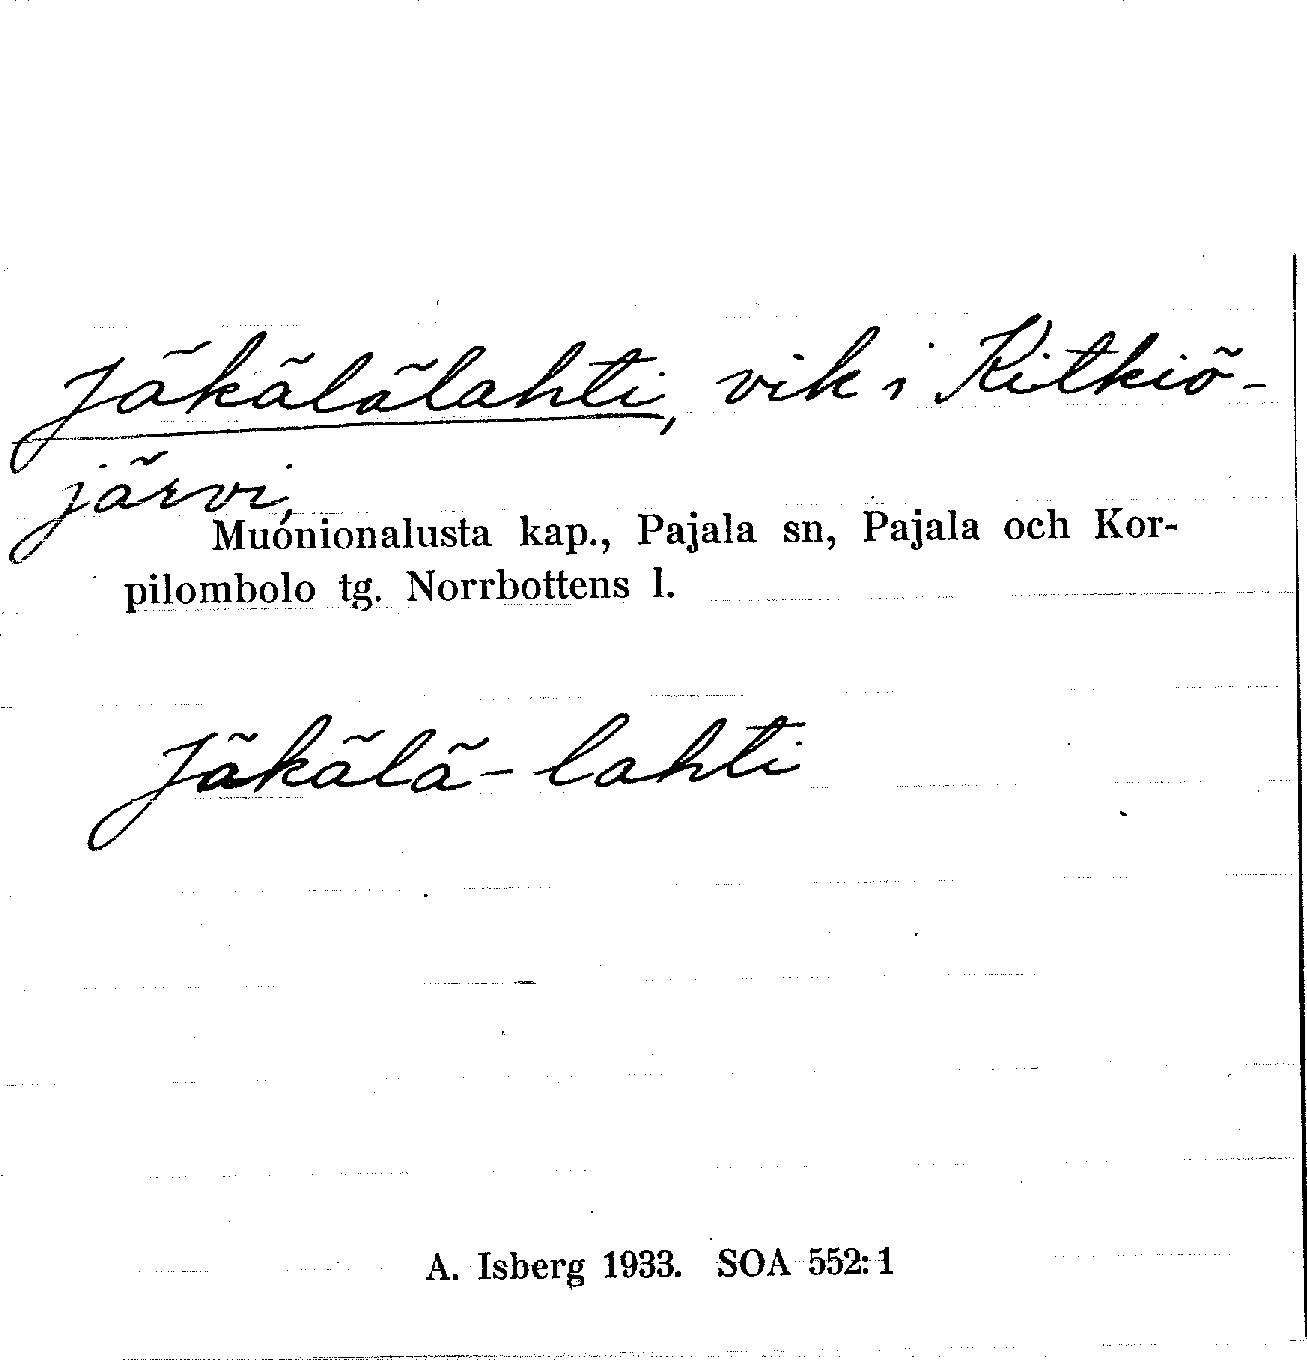 Jäkälälahti, vik i Kitkiö-
järvi,
Muonionalusta kap., Pajala sn, Pajala och Kor-
pilombolo tg. Norrbottens l.
Jäkälä-lahti
A. Isberg 1933. SOA 552:1